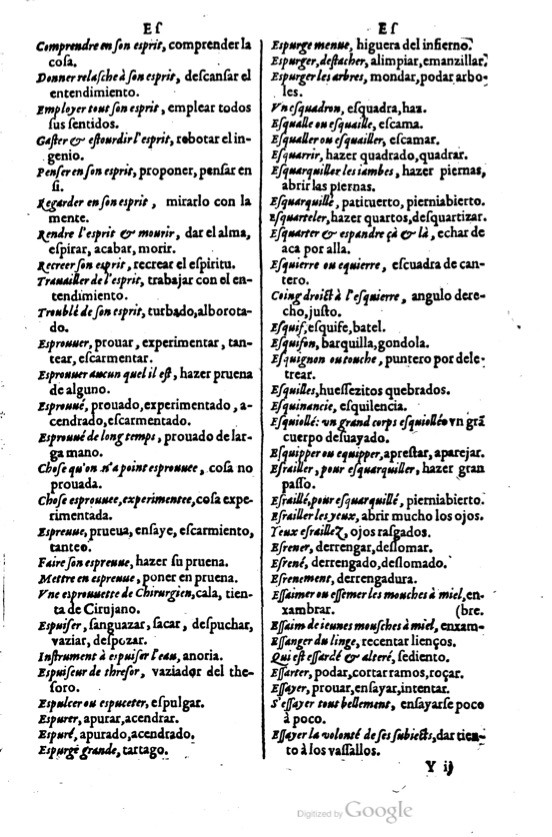 Eſ
Comprendre en ſon eſprit, comprender la
coſa.
Donner relaſche à ſon eſprit, deſcanſar el
entendimiento.
Employer tout ſon eſprit, emplear todos
ſus ſentidos.
Gaſter & eſtourdir l'eſprit, robotar el in-
genio.
Penſer en ſon eſprit, proponer, penſar en
ſi.
Regarder en ſon eſprit, mirarlo con la
mente.
Rendre l'eſprit & mourir, dar el alma,
eſpirar, acabar, morir.
Recreer ſon eſprit, recrear el eſpiritu.
Trauailler de l'eſprit, trabajar con el en-
tendimiento.
Troublé de ſon eſprit, turbado, alborota-
do.
Eſprouuer, prouar, experimentar, tan-
tear, eſcarmentar.
Eſprouuer aucun quel il eſt, hazer pruena
de alguno.
Eſprouué, prouado, experimentado, a-
cendrado, eſcarmentado.
Eſprouué de long temps, prouado de lar-
ga mano.
Choſe qu'on n'a point esprouuee, coſa no
prouada.
Choſe esprouuee, experimentee, coſa expe-
rimentada.
Eſpreuue, prueua, enſaye, eſcarmiento,
tanteo.
Faire ſon eſpreuue, hazer ſu pruena.
Mettre en eſpreuue, poner en pruena.
Vne eſprouuette de Chirurgien, cala, tien-
ta de Cirujano.
Eſpuiſer, ſanguazar, ſacar, deſpuchar,
vaziar, deſpozar.
Inſtrument à eſpuiſer l'eau, anoria.
Eſpuiſeur de threſor, vaziador del the-
ſoro.
Eſpulcer ou eſpuceter, eſpulgar.
Eſpurer, apurar, acendrar.
Eſpuré, apurado, acendrado.
Eſpurge grande, tartago.
Eſ
Eſpurge menue, higuera del infierno.
Eſpurger, deſtacher, alimpiar, emanzillar.
Eſpurger les arbres, mondar, podar arbo-
les.
Vn eſquadron, eſquadra, haz.
Eſqualle ou eſquaille, eſcama.
Eſqualler ou eſquailler, eſcamar.
Eſquarrir, hazer quadrado, quadrar.
Eſquarquiller les iambes, hazer piernas,
abrir las piernas.
Eſquarquillé, patituerto, pierniabierto.
Eſquarteler, hazer quartos, deſquartizar.
Eſquarter & eſpandre çà & là, echar de
aca por alla.
Eſquierre ou equierre, eſcuadra de can-
tero.
Coing droict à l'eſquierre, angulo dere-
cho, juſto.
Eſquif, eſquife, batel.
Eſquifon, barquilla, gondola.
Eſquignon ou touche, puntero por dele-
trear.
Eſquilles, hueſſezitos quebrados.
Eſquinancie, eſquilencia.
Eſquiollé: vn grand corps eſquiollé o vn grã
cuerpo deſuayado.
Eſquipper ou equipper, apreſtar, aparejar.
Eſrailler, pour eſquarquiller, hazer gran
paſſo.
Eſraillé, pour eſquarquillé, pierniabierto.
Eſrailler les yeux, abrir mucho los ojos.
Yeux eſraillez, ojos raſgados.
Eſrener, derrengar, deſlomar.
Eſrené, derrengado, deſlomado.
Eſrenement, derrengadura.
Eſſaimer ou eſſemer les mouches à miel, en-
xambrar. (bre.
Eſſaim de ieunes mouſches à miel, enxam-
Eſſanger du linge, recentar lienços.
Qui eſt eſſardé & alteré, ſediento.
Eſſarter, podar, cortar ramos, roçar.
Eſſayer, prouar, enſayar, intentar.
S'eſſayer tout bellement, enſayarſe poco
à poco.
Eſſayer la volonté de ſes ſubiects, dar tien-
to à los vaſſallos.
Y ij
Digitized by Google